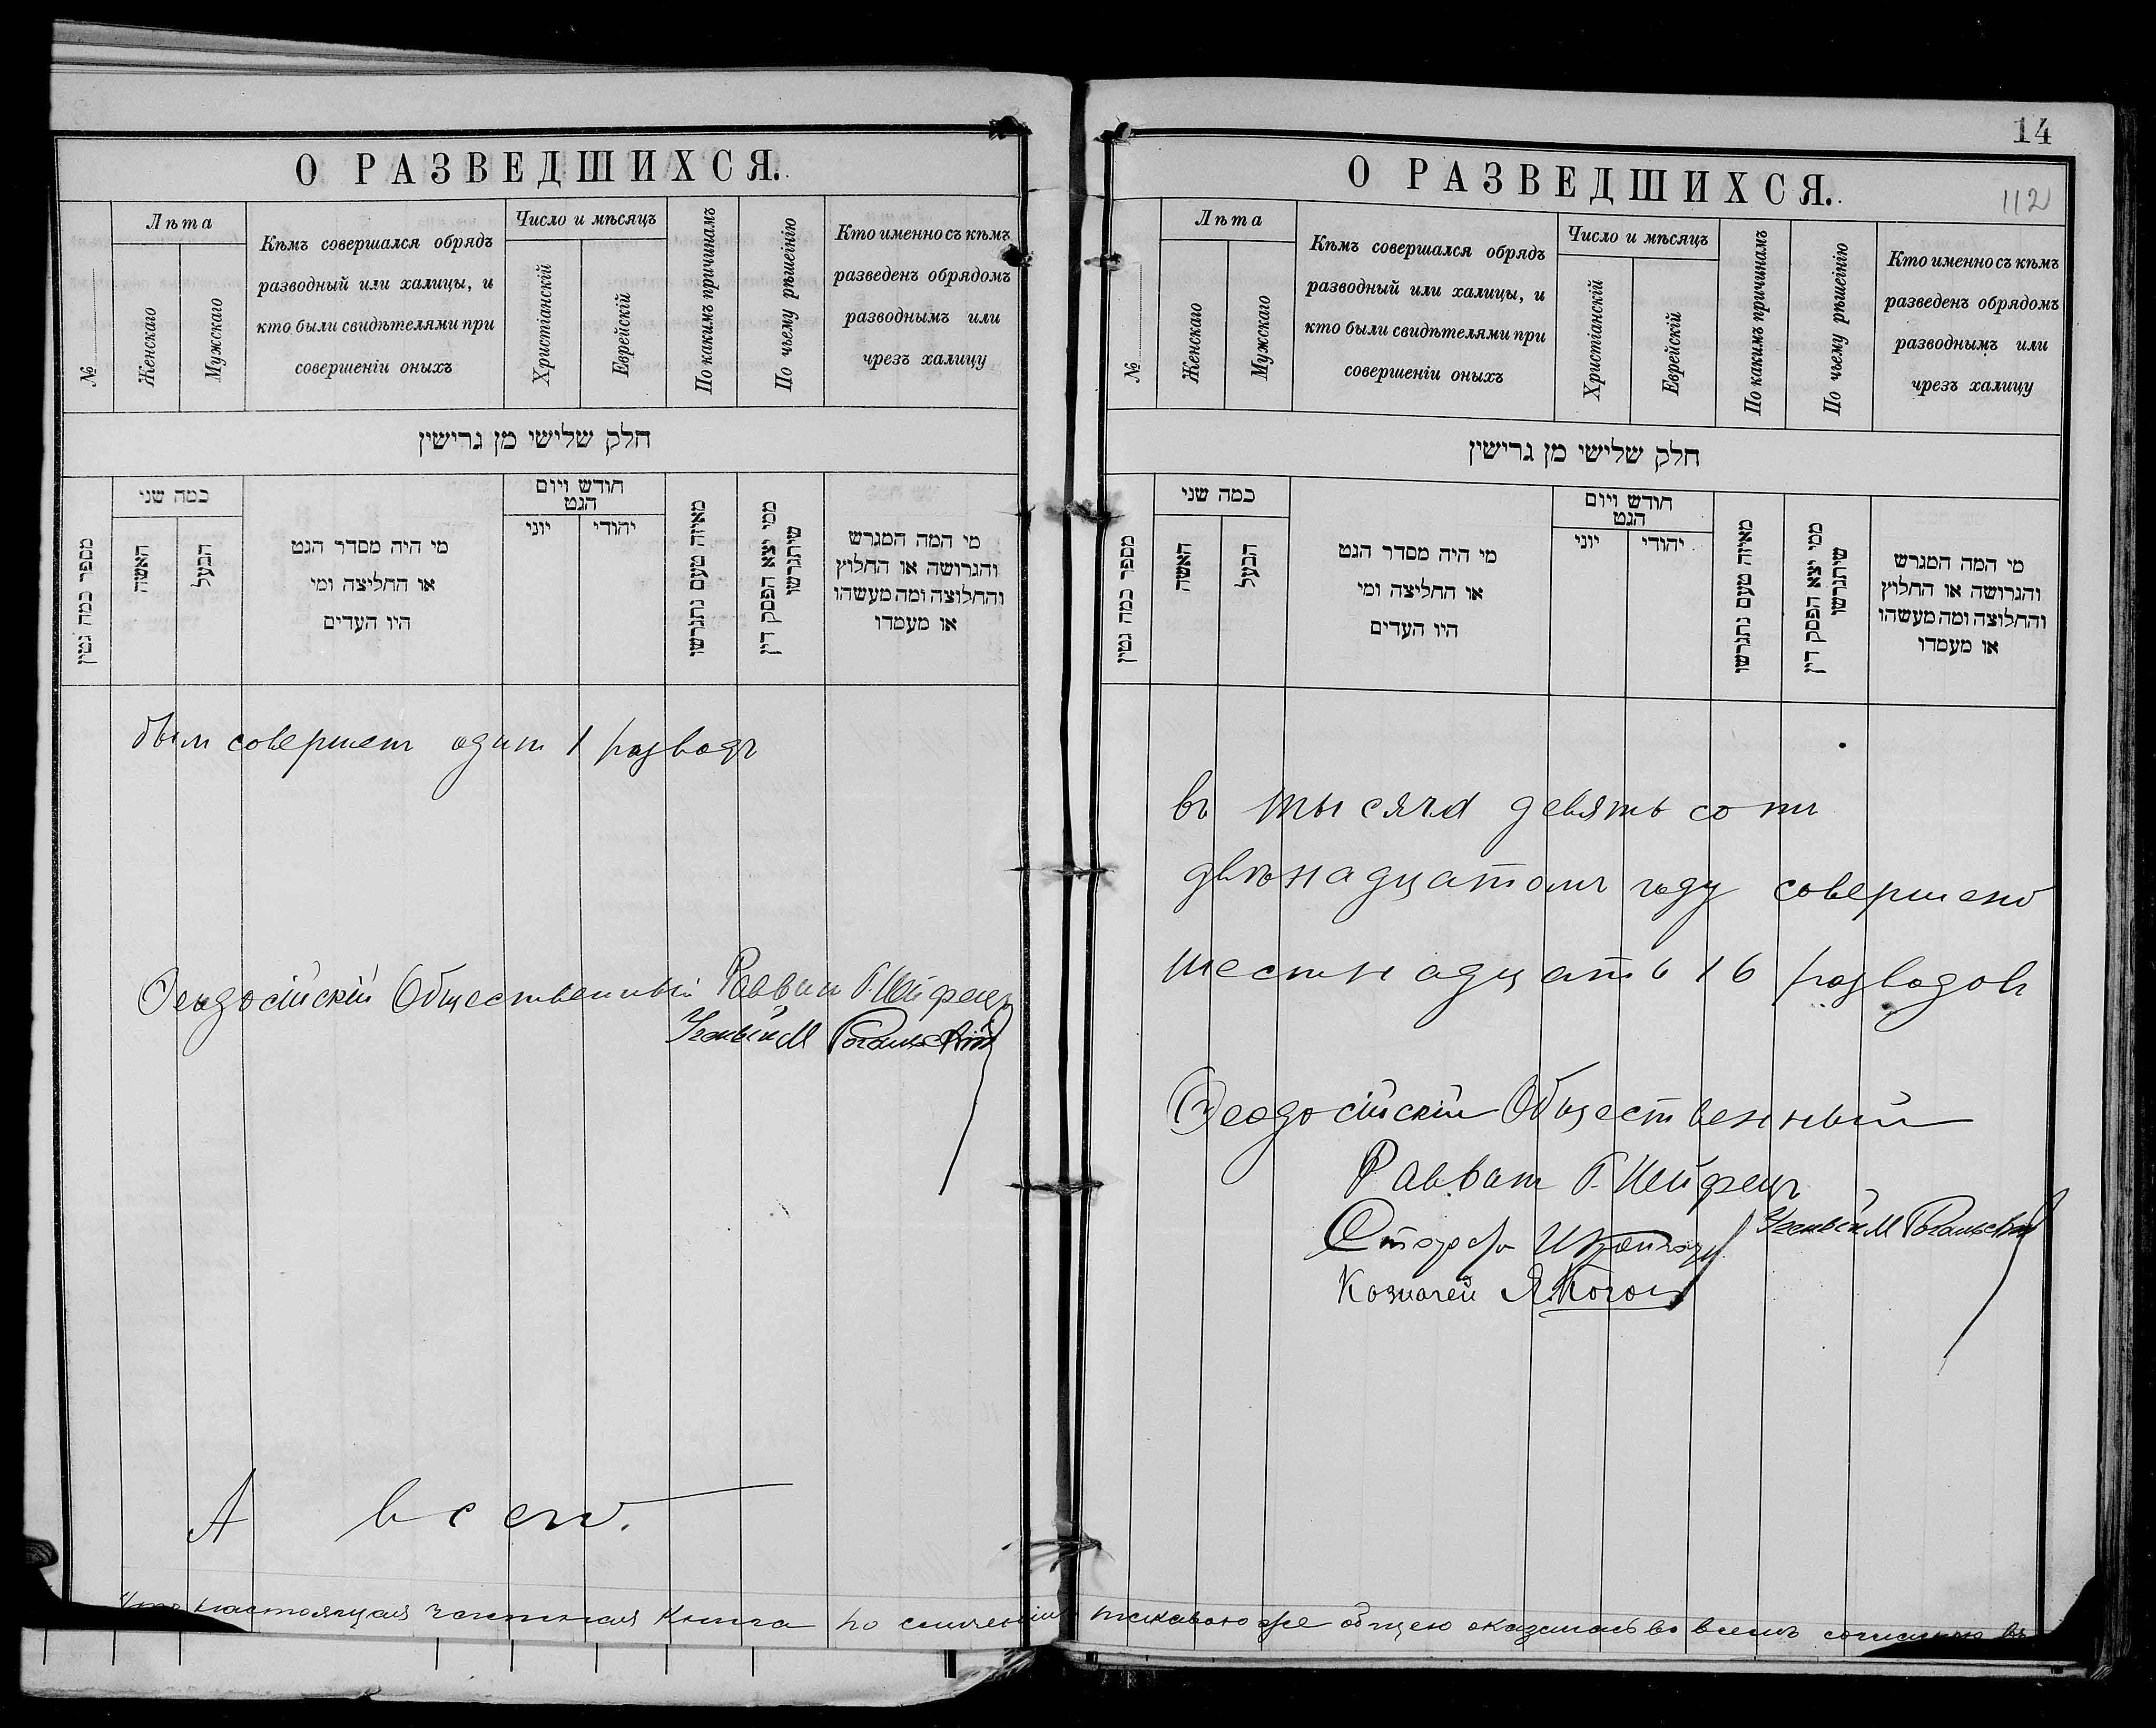 О РАЗВЕДШИХСЯ.
№
Лѣта
Женскаго
Мужскаго
Кѣмъ совершался обрядъ
разводный или халицы, и
кто были свидѣтелями при
совершеніи оныхъ
Число и мѣсяцъ
Христіанскій
Еврейскій
По какимъ причинамъ
По чьему рѣшенію
Кто именно съ кѣмъ
разведенъ обрядомъ
разводнымъ или
чрезъ халицу
חלק שלישי מן גרישין
מספר כמה גטין
כמה שני
האשה
הבעל
מי היה מסדר הגט
או החליצה ומי
היו העדים
חודש ויום
הגט
יוני
יהודי
מאיזה טעם נתגרשו
ממי יצא הפסק דין
שיתגרשו
מי המה המגרש
והגרושה או החלוץ
והחלוצה ומה מעשהו
או מעמדו
был совершен один 1 разводъ
Феодосійскій Общественный Раввин Г. Шейфецъ
Ученый М
А всего
настоящая частная книга по сличеніи
14
О РАЗВЕДШИХСЯ.
112
№
Лѣта
Женскаго
Мужскаго
Кѣмъ совершался обрядъ
разводный или халицы, и
кто были свидѣтелями при
совершеніи оныхъ
Число и мѣсяцъ
Христіанскій
Еврейскій
По какимъ причинамъ
По чьему рѣшенію
Кто именно съ кѣмъ
разведенъ обрядомъ
разводнымъ или
чрезъ халицу
חלק שלישי מן גרישין
מספר כמה גטין
כמה שני
האשה
הבעל
מי היה מסדר הגט
או החליצה ומי
היו העדים
חודש ויום
הגט
יוני
יהודי
מאיזה טעם נתגרשו
ממי יצא הפסק דין
שיתגרשו
מי המה המגרש
והגרושה או החלוץ
והחלוצה ומה מעשהו
או מעמדו
въ тысяча девятьсотъ
двѣнадцатомъ году совершено
шестнадцать 16 разводовъ
Феодосійскій Общественный
Раввинъ Г. Шейфецъ
Ученый М
Староста
Козначей Я. Коган
таковою же общею оказалась во всемъ согласною въ